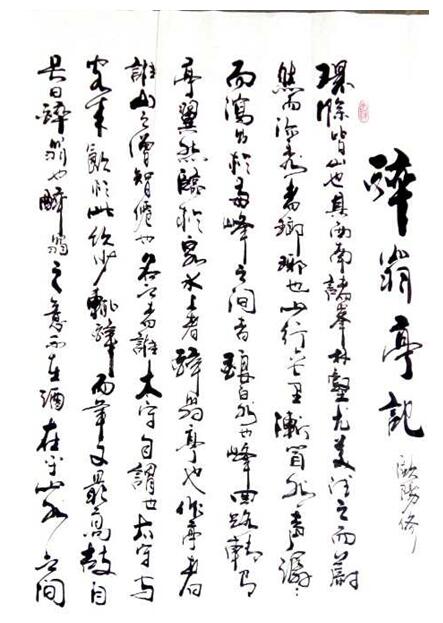 醉翁亭記
歐陽修
環滁皆山也其西南諸峯林壑尤美望之而蔚
然而深秀者瑯琊也山行六七里漸聞水聲潺潺
而瀉出於兩峰之間者釀泉也峰回路轉有
亭翼然臨於泉水上者醉翁亭也作亭者
誰山之僧智僊也名之者誰太守自謂也太守與
客來飲於此飲少輒醉而年又最高故自
號曰醉翁也醉翁之意不在酒在乎山水之間